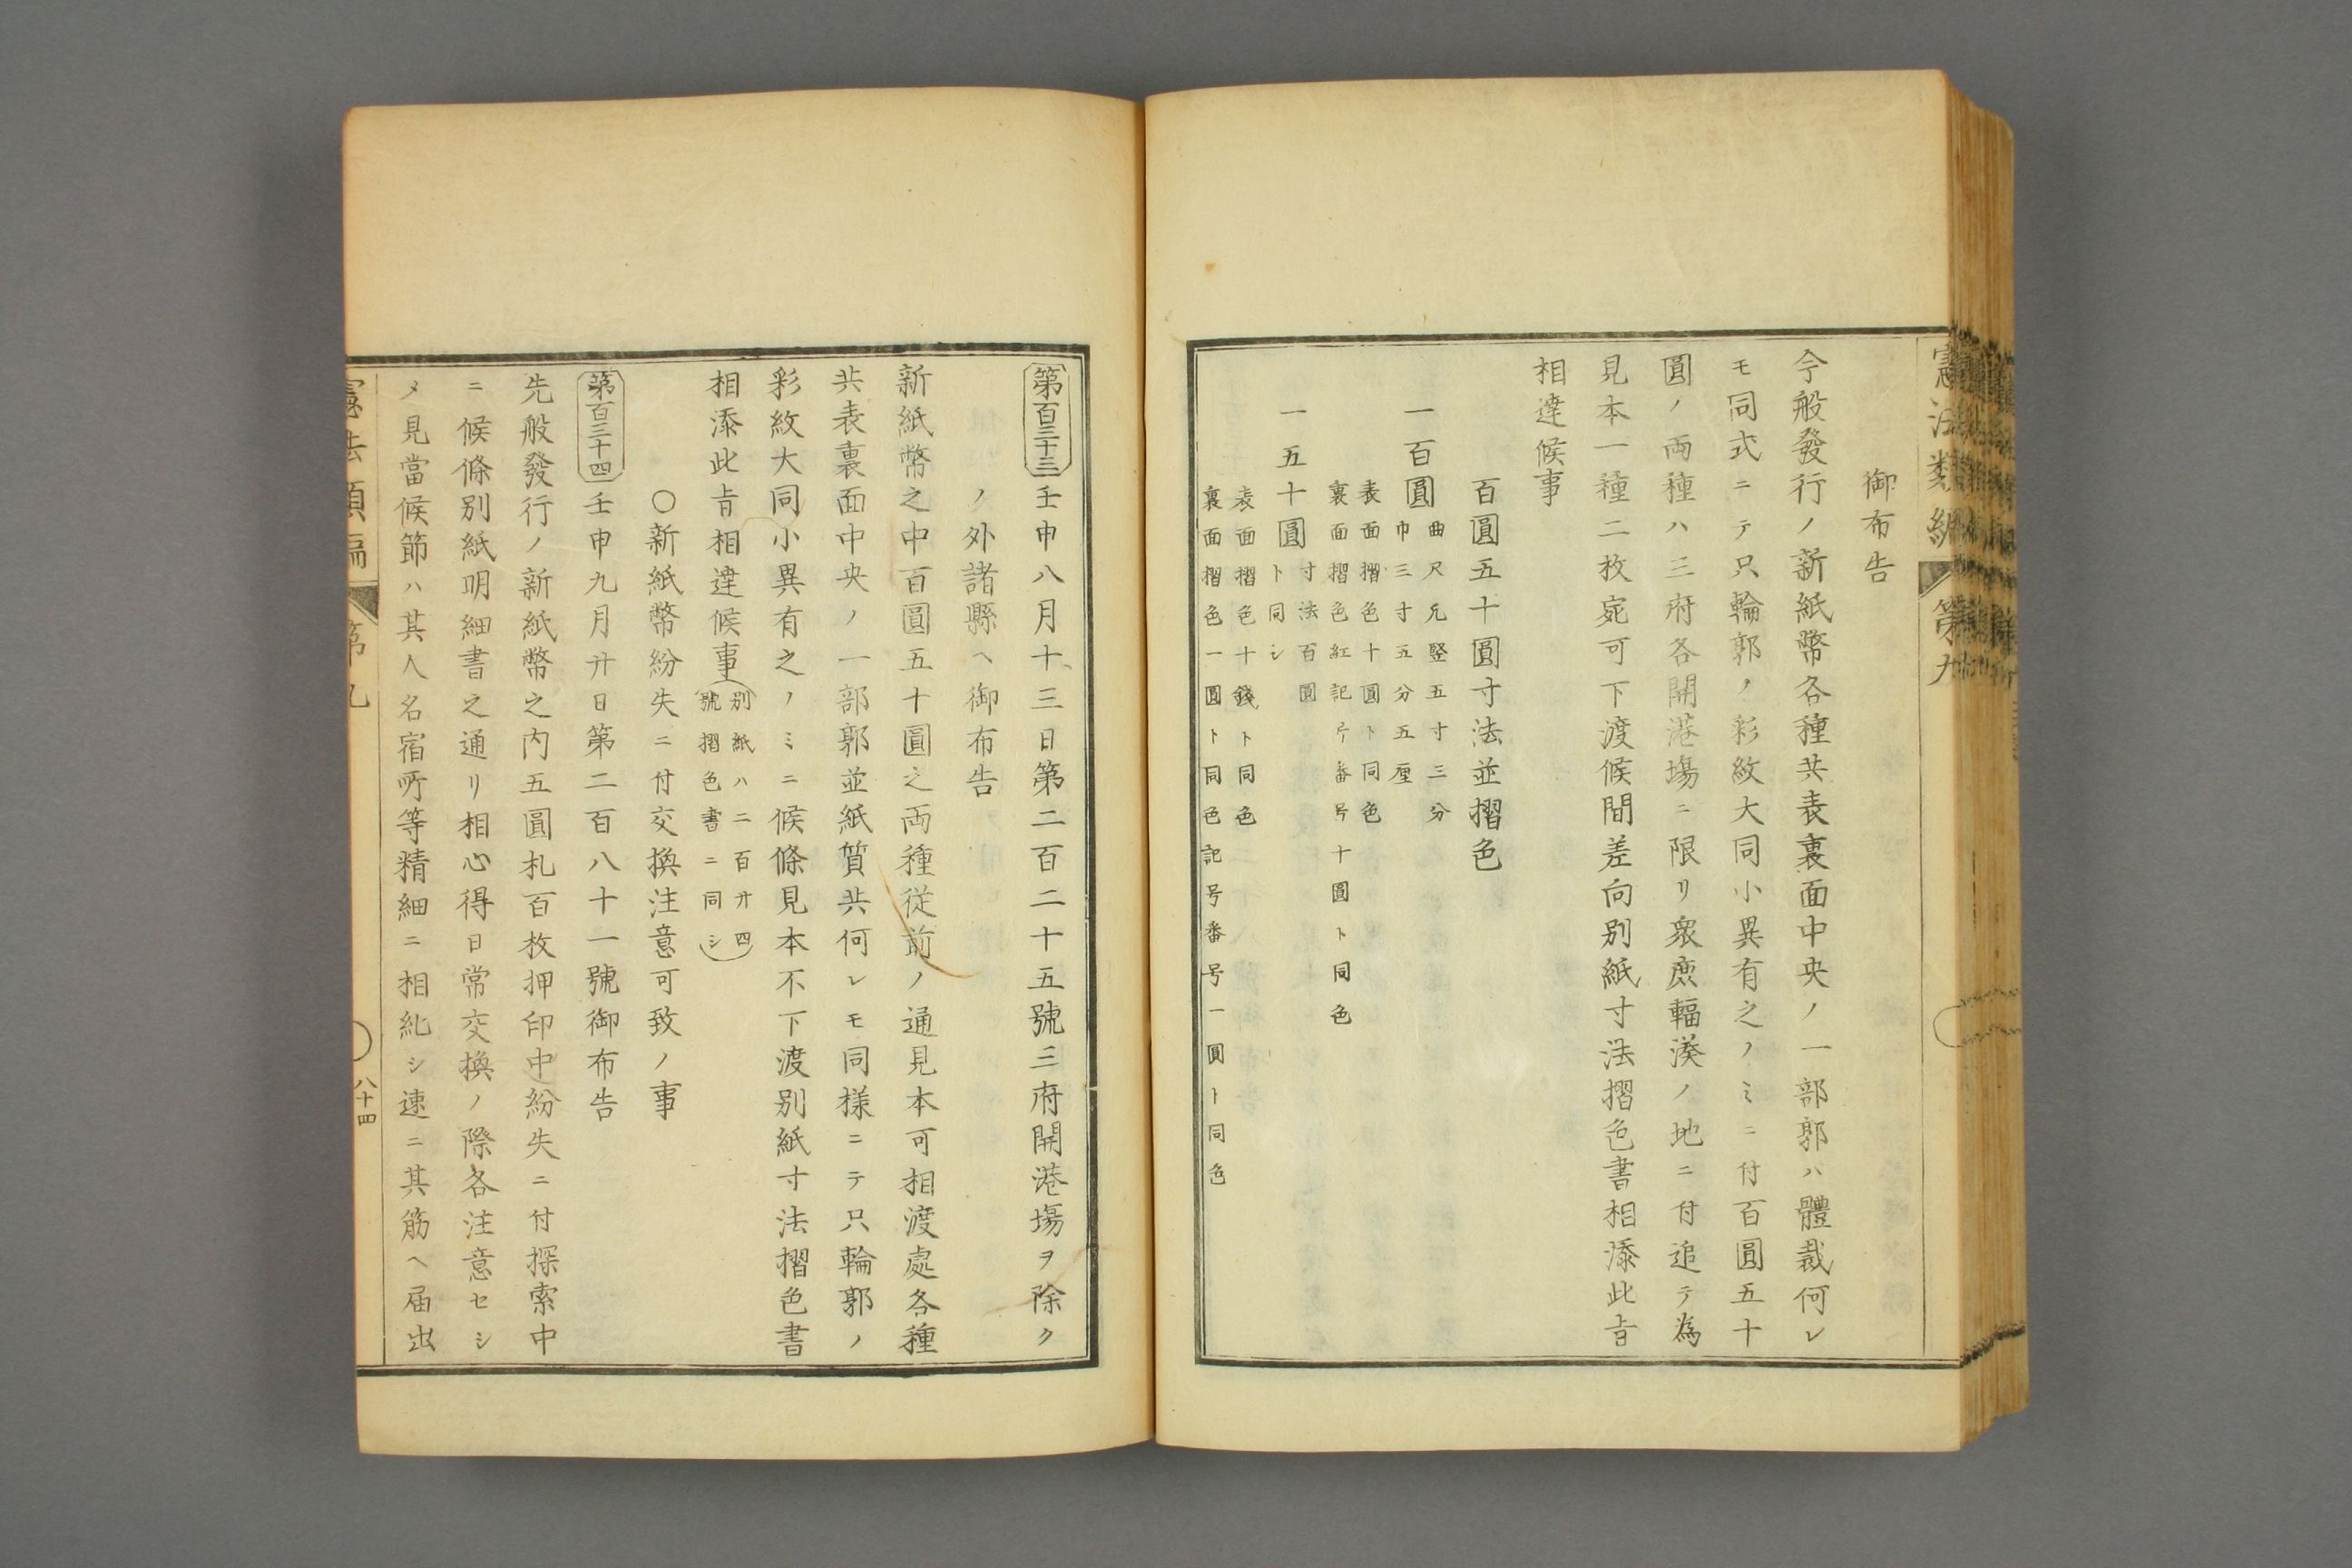 憲法類編
第九
御布告
今般發行ノ新紙幣各種共表裏面中央ノ一部郭ハ體裁何レ
モ同式ニテ只輪郭ノ彩紋大同小異有之ノミニ付百圓五十
圓ノ両種ハ三府各開港場ニ限リ衆庶輻湊ノ地ニ付追テ為
見本一種二枚宛可下渡候間差向別紙寸法摺色書相添此旨
相達候事
百圓五十圓寸法並摺色
一百圓
曲尺凢竪五寸三分
巾三寸五分五厘
表面摺色十圓ト同色
裏面摺色紅記号番号十圓ト同色
一五十圓
寸法百圓
ト同シ
表面摺色十錢ト同色
裏面摺色一圓ト同色記号番号一圓ト同色
第百三十三
壬申八月十三日第二百二十五號三府開港場ヲ除ク
ノ外諸縣ヘ御布告
新紙幣之中百圓五十圓之両種従前ノ通見本可相渡處各種
共表裏面中央ノ一部郭並紙質共何レモ同様ニテ只輪郭ノ
彩紋大同小異有之ノミニ候條見本不下渡別紙寸法摺色書
相添此旨相達候事
(別紙ハ二百廿四
號摺色書ニ同シ)
○新紙幣紛失ニ付交換注意可致ノ事
第百三十四
壬申九月廿日第二百八十一號御布告
先般發行ノ新紙幣之内五圓札百枚押印中紛失ニ付探索中
ニ候條別紙明細書之通リ相心得日常交換ノ際各注意セシ
メ見當候節ハ其人名宿所等精細ニ相糺シ速ニ其筋ヘ届出
憲法類編
第九
八十四